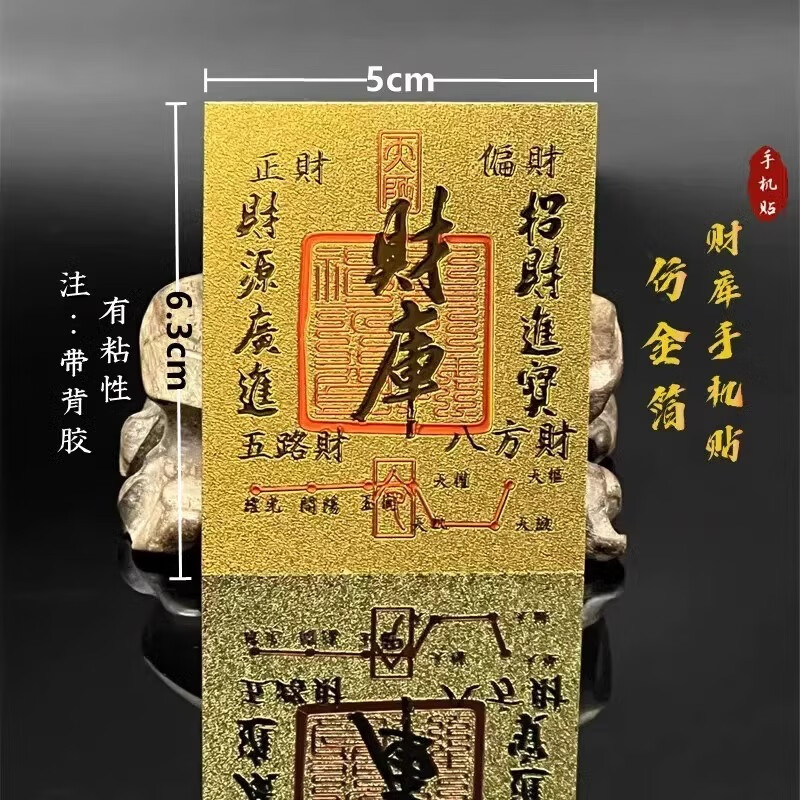 5cm
6.3cm
手机贴
财库手机贴
仿金箔
注：带背胶
有粘性
正財
偏財
財源廣進
財庫
招財進寶
五路財
八方財
天權
天樞
瑤光
開陽
玉衡
天璇